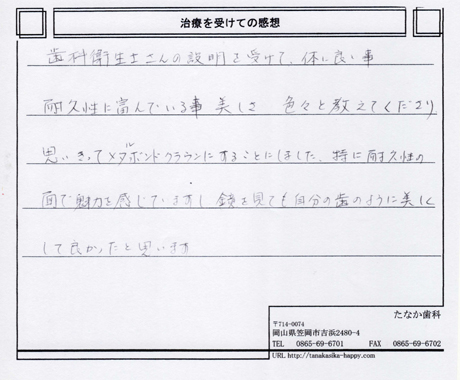 治療を受けての感想
歯科衛生士さんの説明を受けて、体に良い事
耐久性に富んでいる事 美しさ 色々と教えてくださり
思いきってメタルボンドクラウンにすることにしました、特に耐久性の
面で魅力を感じていますし 鏡を見ても自分の歯のように美しく
して良かったと思います
たなか歯科
〒714-0074
岡山県笠岡市吉浜2480-4
TEL 0865-69-6701 FAX 0865-69-6702
URL http://tanakasika-happy.com/